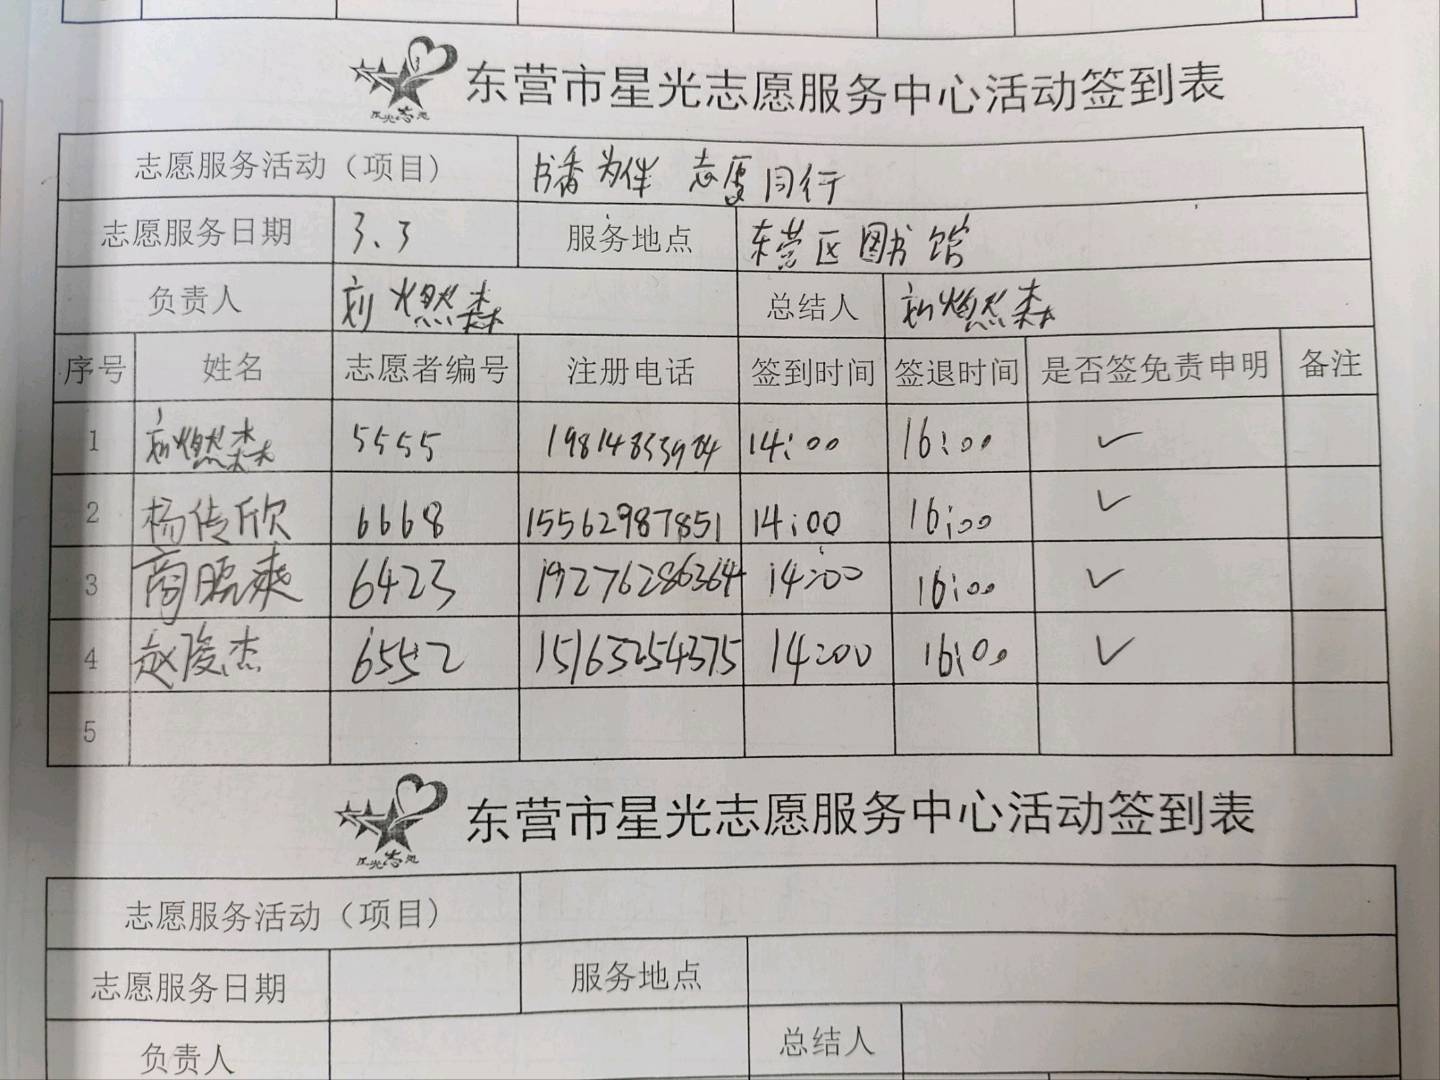 星光志愿
东营市星光志愿服务中心活动签到表
志愿服务活动（项目） 书香为伴 志愿同行
志愿服务日期 3.3 服务地点 东营区图书馆
负责人 刘燃森 总结人 刘燃森
序号 姓名 志愿者编号 注册电话 签到时间 签退时间 是否签免责申明 备注
1 刘燃森 5555 14:00 16:00 ✓
2 杨传欣 6668 15562987851 14:00 16:00 ✓
3 商晓爽 6423 19276286364 14:00 16:00 ✓
4 赵俊杰 6552 15163254375 14:00 16:00 ✓
5
星光志愿
东营市星光志愿服务中心活动签到表
志愿服务活动（项目）
志愿服务日期 服务地点
负责人 总结人